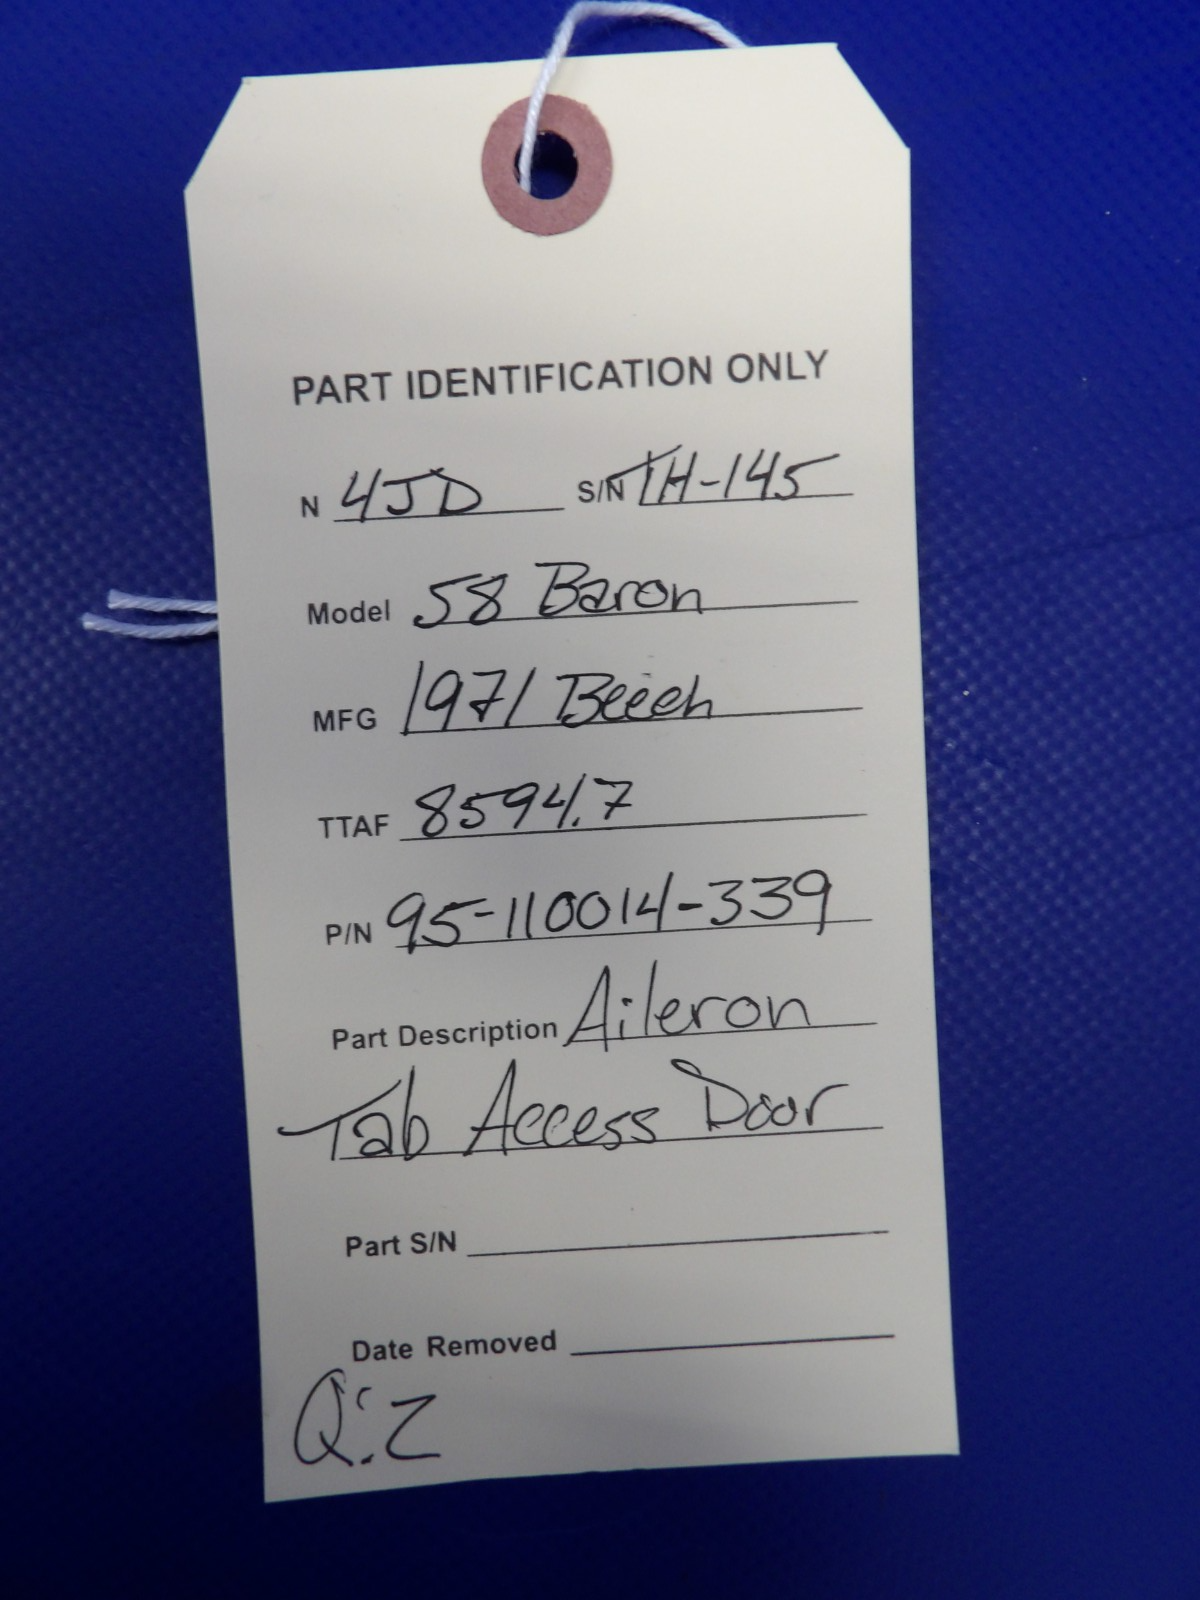 PART IDENTIFICATION ONLY
N 4JD S/N TH-145
Model 58 Baron
MFG 1971 Beech
TTAF 8594.7
P/N 95-110014-339
Part Description Aileron
Tab Access Door
Part S/N
Date Removed
Q:2